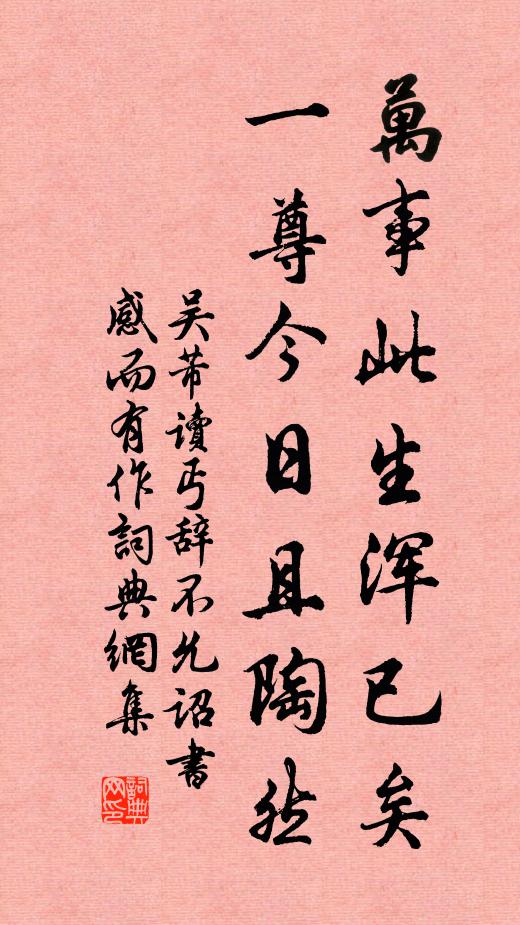 萬事此生浑已矣
一尊今日且陶然
吴芾讀丐辞不允詔書
感而有作詞典網集
詞典网印